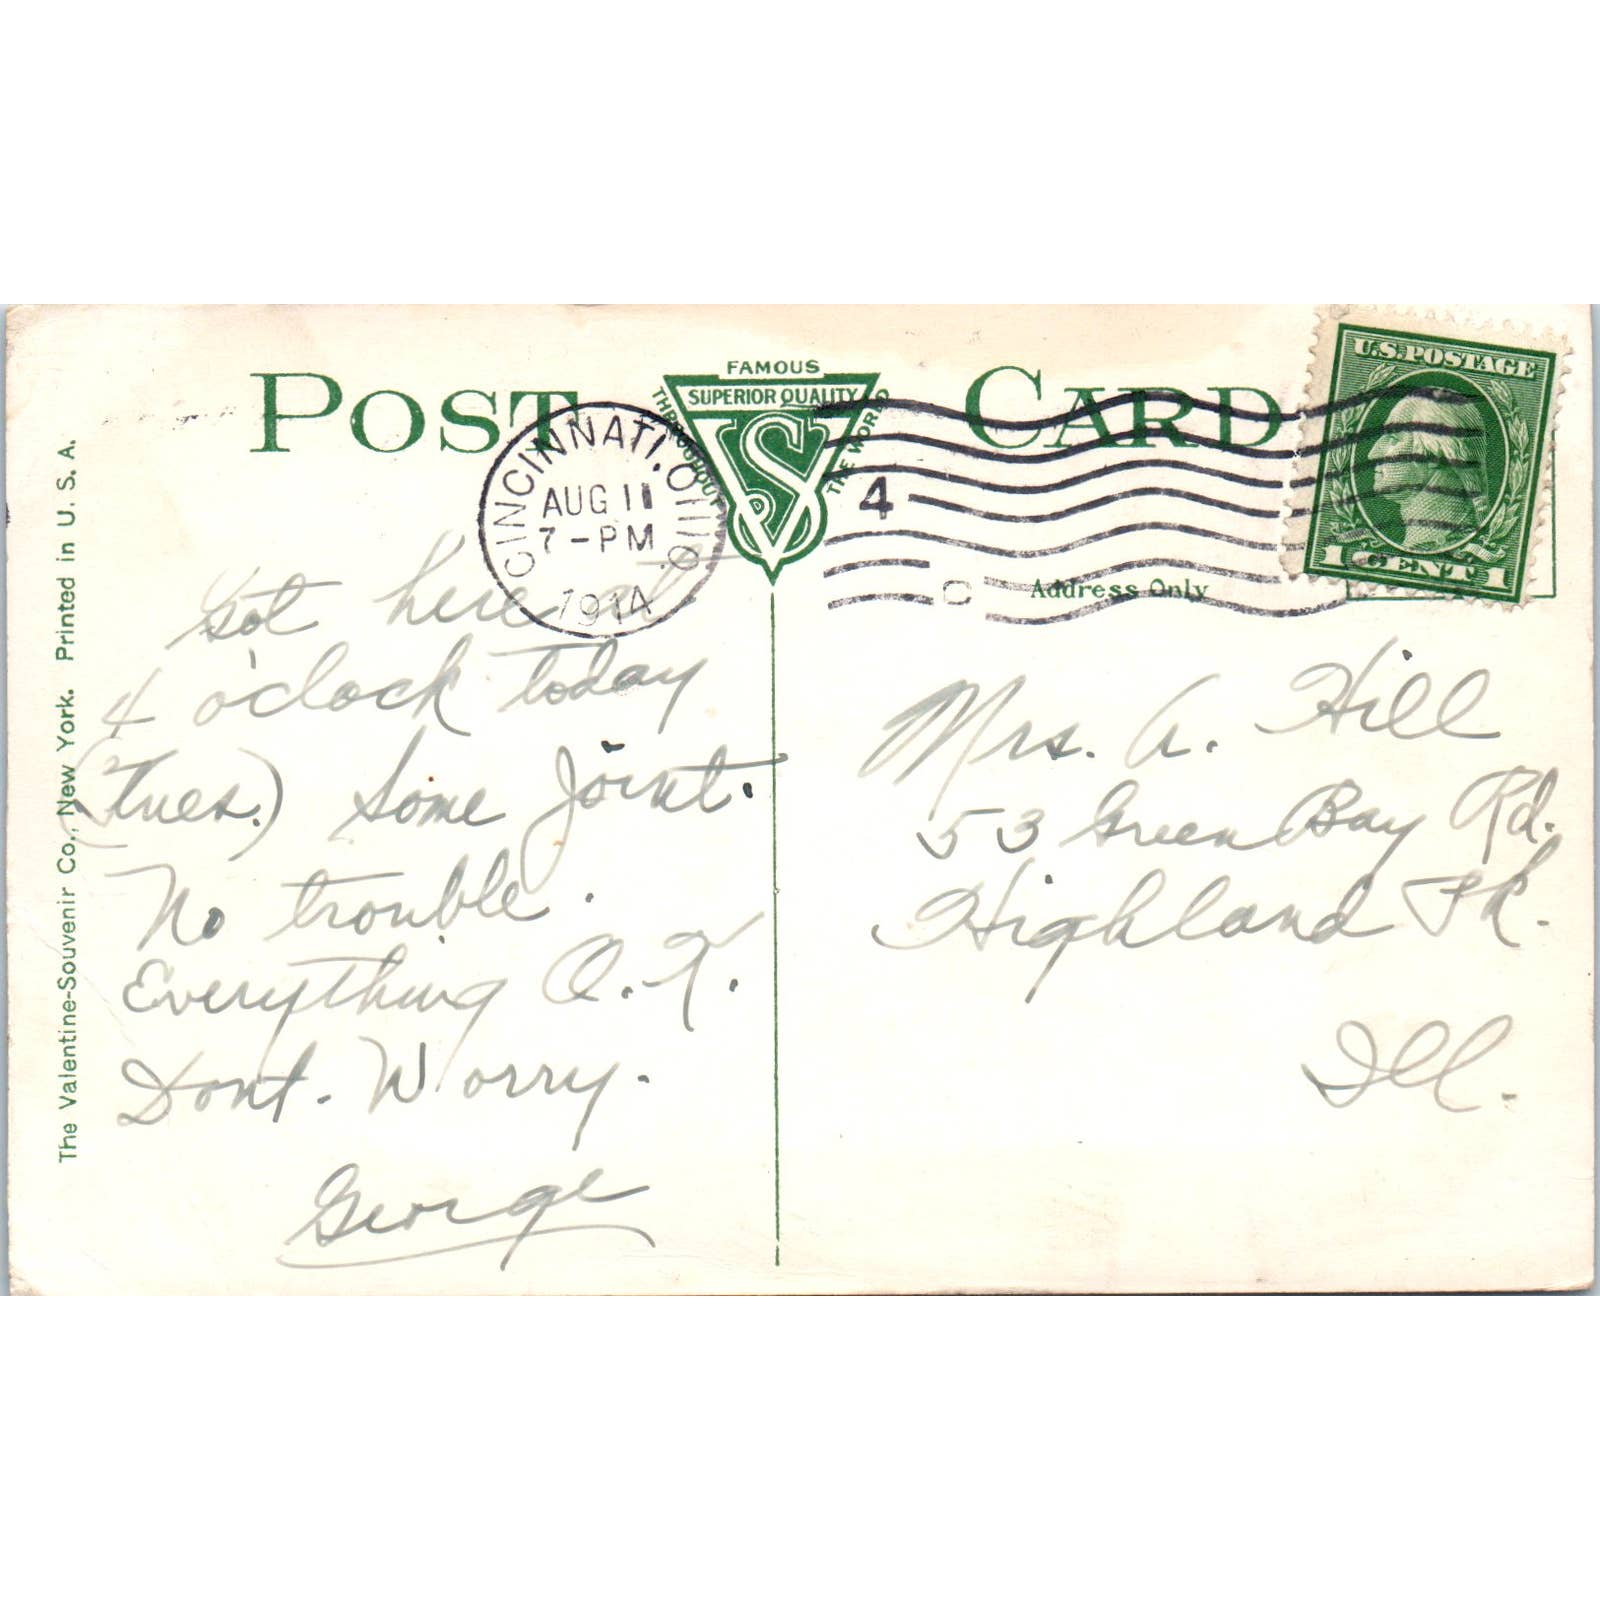 POST CARD
FAMOUS
SUPERIOR QUALITY
THROUGHOUT THE WORLD
VS
CINCINNATI, OHIO
AUG 11
7-PM
1914
4
C
U.S. POSTAGE
1 CENT 1
Address Only
Got here at
4 o'clock today
(Tues.) Some joint.
No trouble.
Everything O.K.
Dont. Worry.
George
Mrs. A. Hill
53 Green Bay Rd.
Highland Pk.
Ill.
The Valentine-Souvenir Co., New York. Printed in U. S. A.